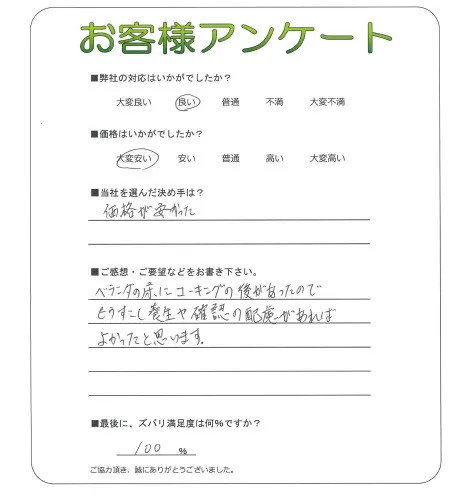 お客様アンケート
■弊社の対応はいかがでしたか？
大変良い 良い 普通 不満 大変不満
■価格はいかがでしたか？
大変安い 安い 普通 高い 大変高い
■当社を選んだ決め手は？
価格が安かった
■ご感想・ご要望などをお書き下さい。
ベランダの床にコーキングの後があったので
もうすこし養生や確認の配慮があれば
よかったと思います。
■最後に、ズバリ満足度は何％ですか？
100 %
ご協力頂き、誠にありがとうございました。